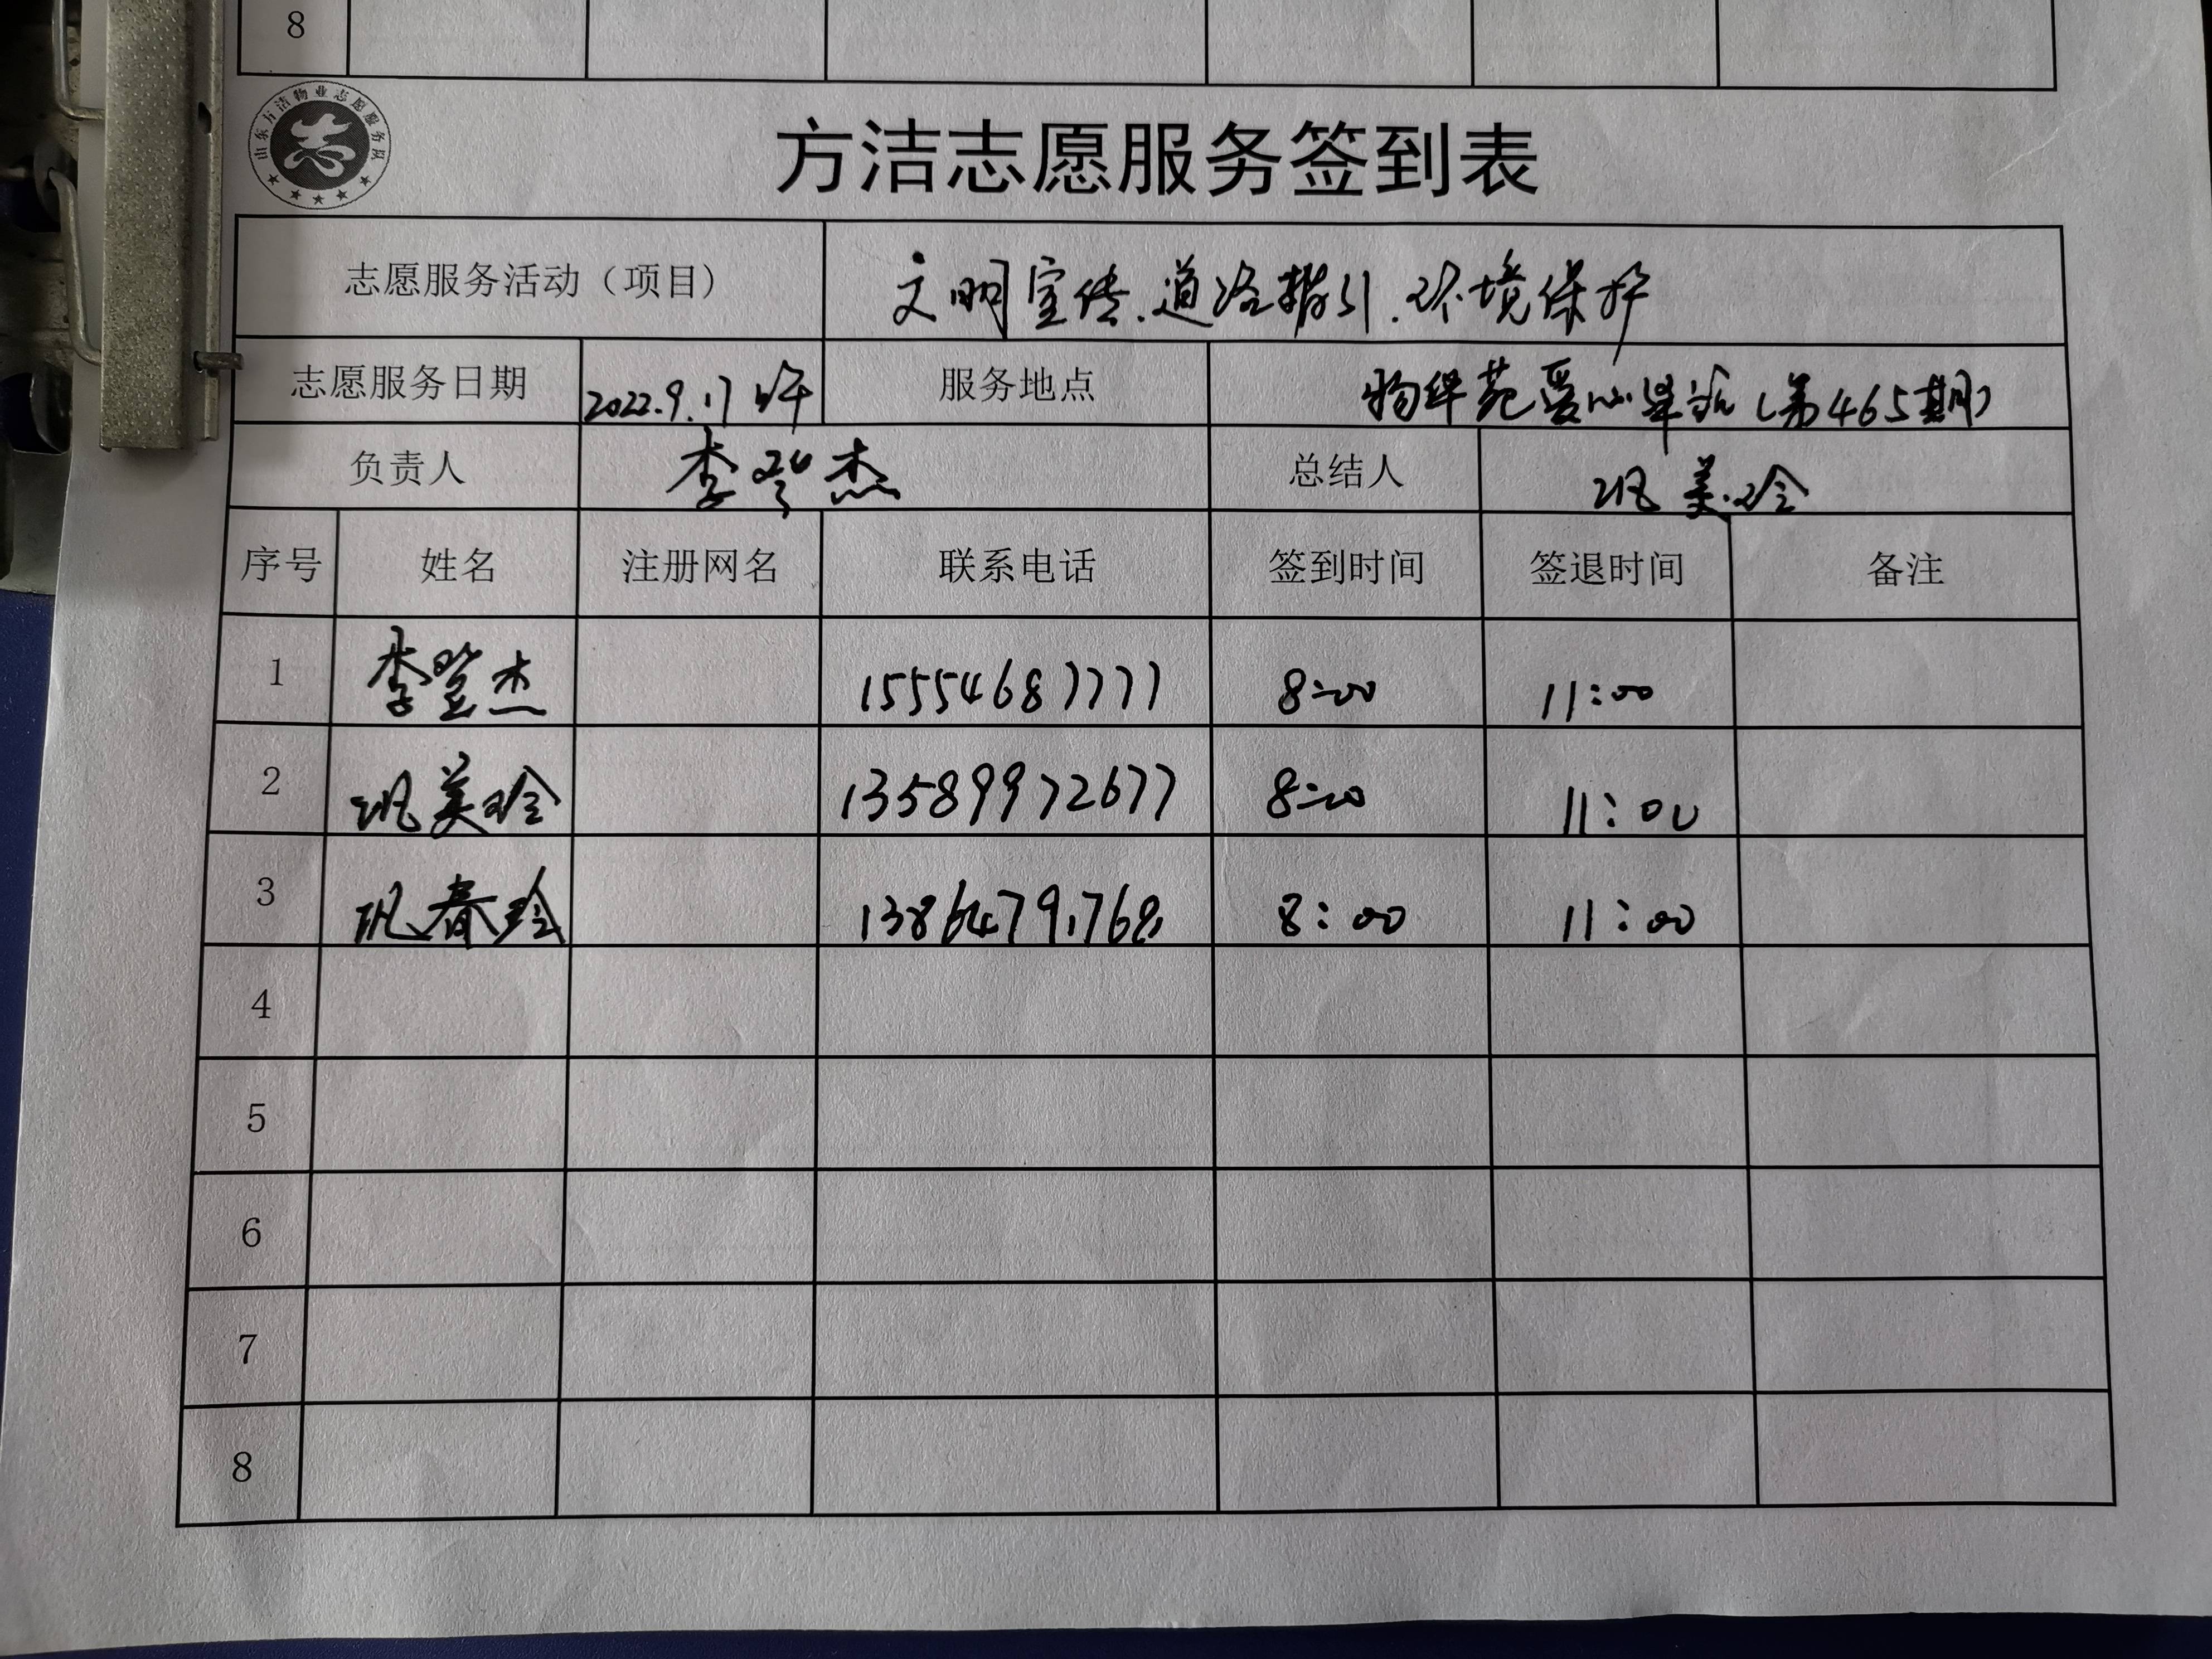 8
山东方洁物业志愿服务队
志
方洁志愿服务签到表
志愿服务活动（项目） 文明宣传.道路指引.环境保护
志愿服务日期 2022.9.17 上午 服务地点 物华苑爱心驿站（第465期）
负责人 李登杰 总结人 巩美玲
序号 姓名 注册网名 联系电话 签到时间 签退时间 备注
1 李登杰 15554687777 8:00 11:00
2 巩美玲 13589972677 8:00 11:00
3 巩春玲 13864791768 8:00 11:00
4
5
6
7
8